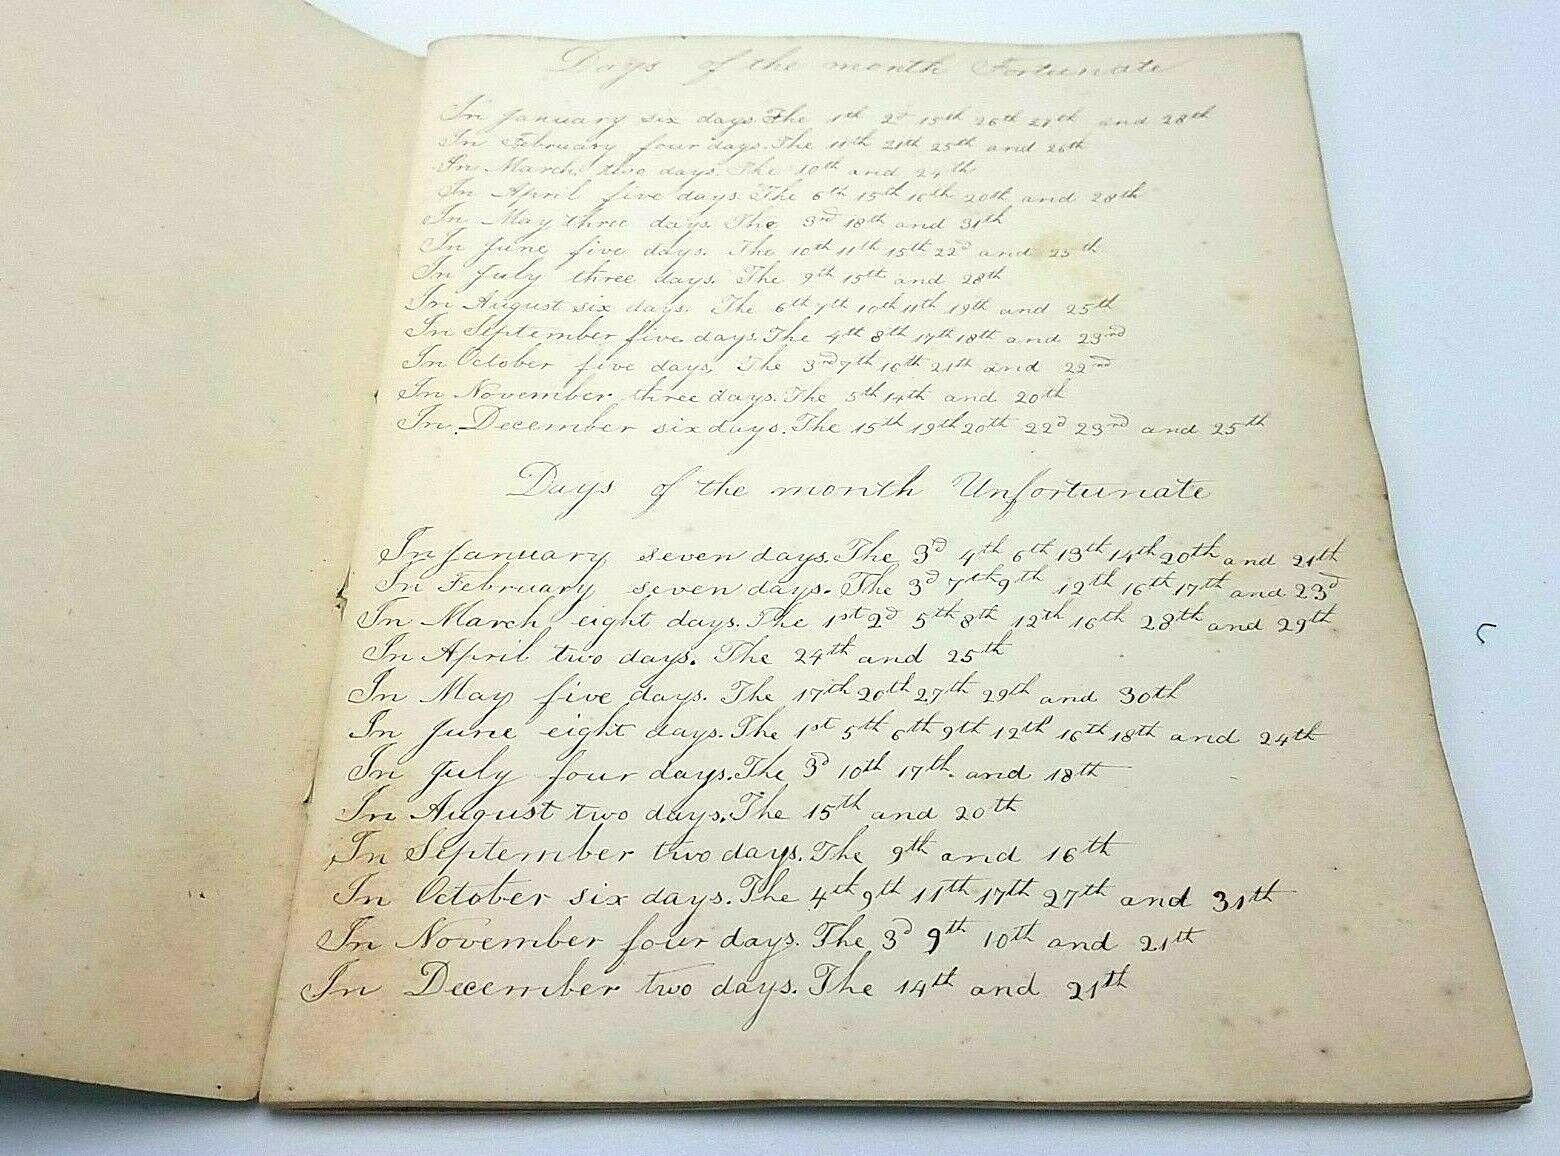 Days of the month Fortunate
In January six days. The 1th 2d 15th 26th 27th and 28th
In February four days. The 11th 21th 25th and 26th
In March two days. The 10th and 24th
In April five days. The 6th 15th 16th 20th and 28th
In May three days. The 3rd 18th and 31th
In June five days. The 10th 11th 15th 22d and 25th
In July three days. The 9th 15th and 28th
In August six days. The 6th 7th 10th 11th 19th and 25th
In September five days. The 4th 8th 17th 18th and 23rd
In October five days. The 3rd 7th 16th 21th and 22nd
In November three days. The 5th 14th and 20th
In December six days. The 15th 19th 20th 22d 23rd and 25th
Days of the month Unfortunate
In January seven days. The 3d 4th 6th 13th 14th 20th and 21th
In February seven days. The 3d 7th 9th 12th 16th 17th and 23d
In March eight days. The 1st 2d 5th 8th 12th 16th 28th and 29th
In April two days. The 24th and 25th
In May five days. The 17th 20th 27th 29th and 30th
In June eight days. The 1st 5th 6th 9th 12th 16th 18th and 24th
In July four days. The 3d 10th 17th and 18th
In August two days. The 15th and 20th
In September two days. The 9th and 16th
In October six days. The 4th 9th 11th 17th 27th and 31th
In November four days. The 3d 9th 10th and 21th
In December two days. The 14th and 21th